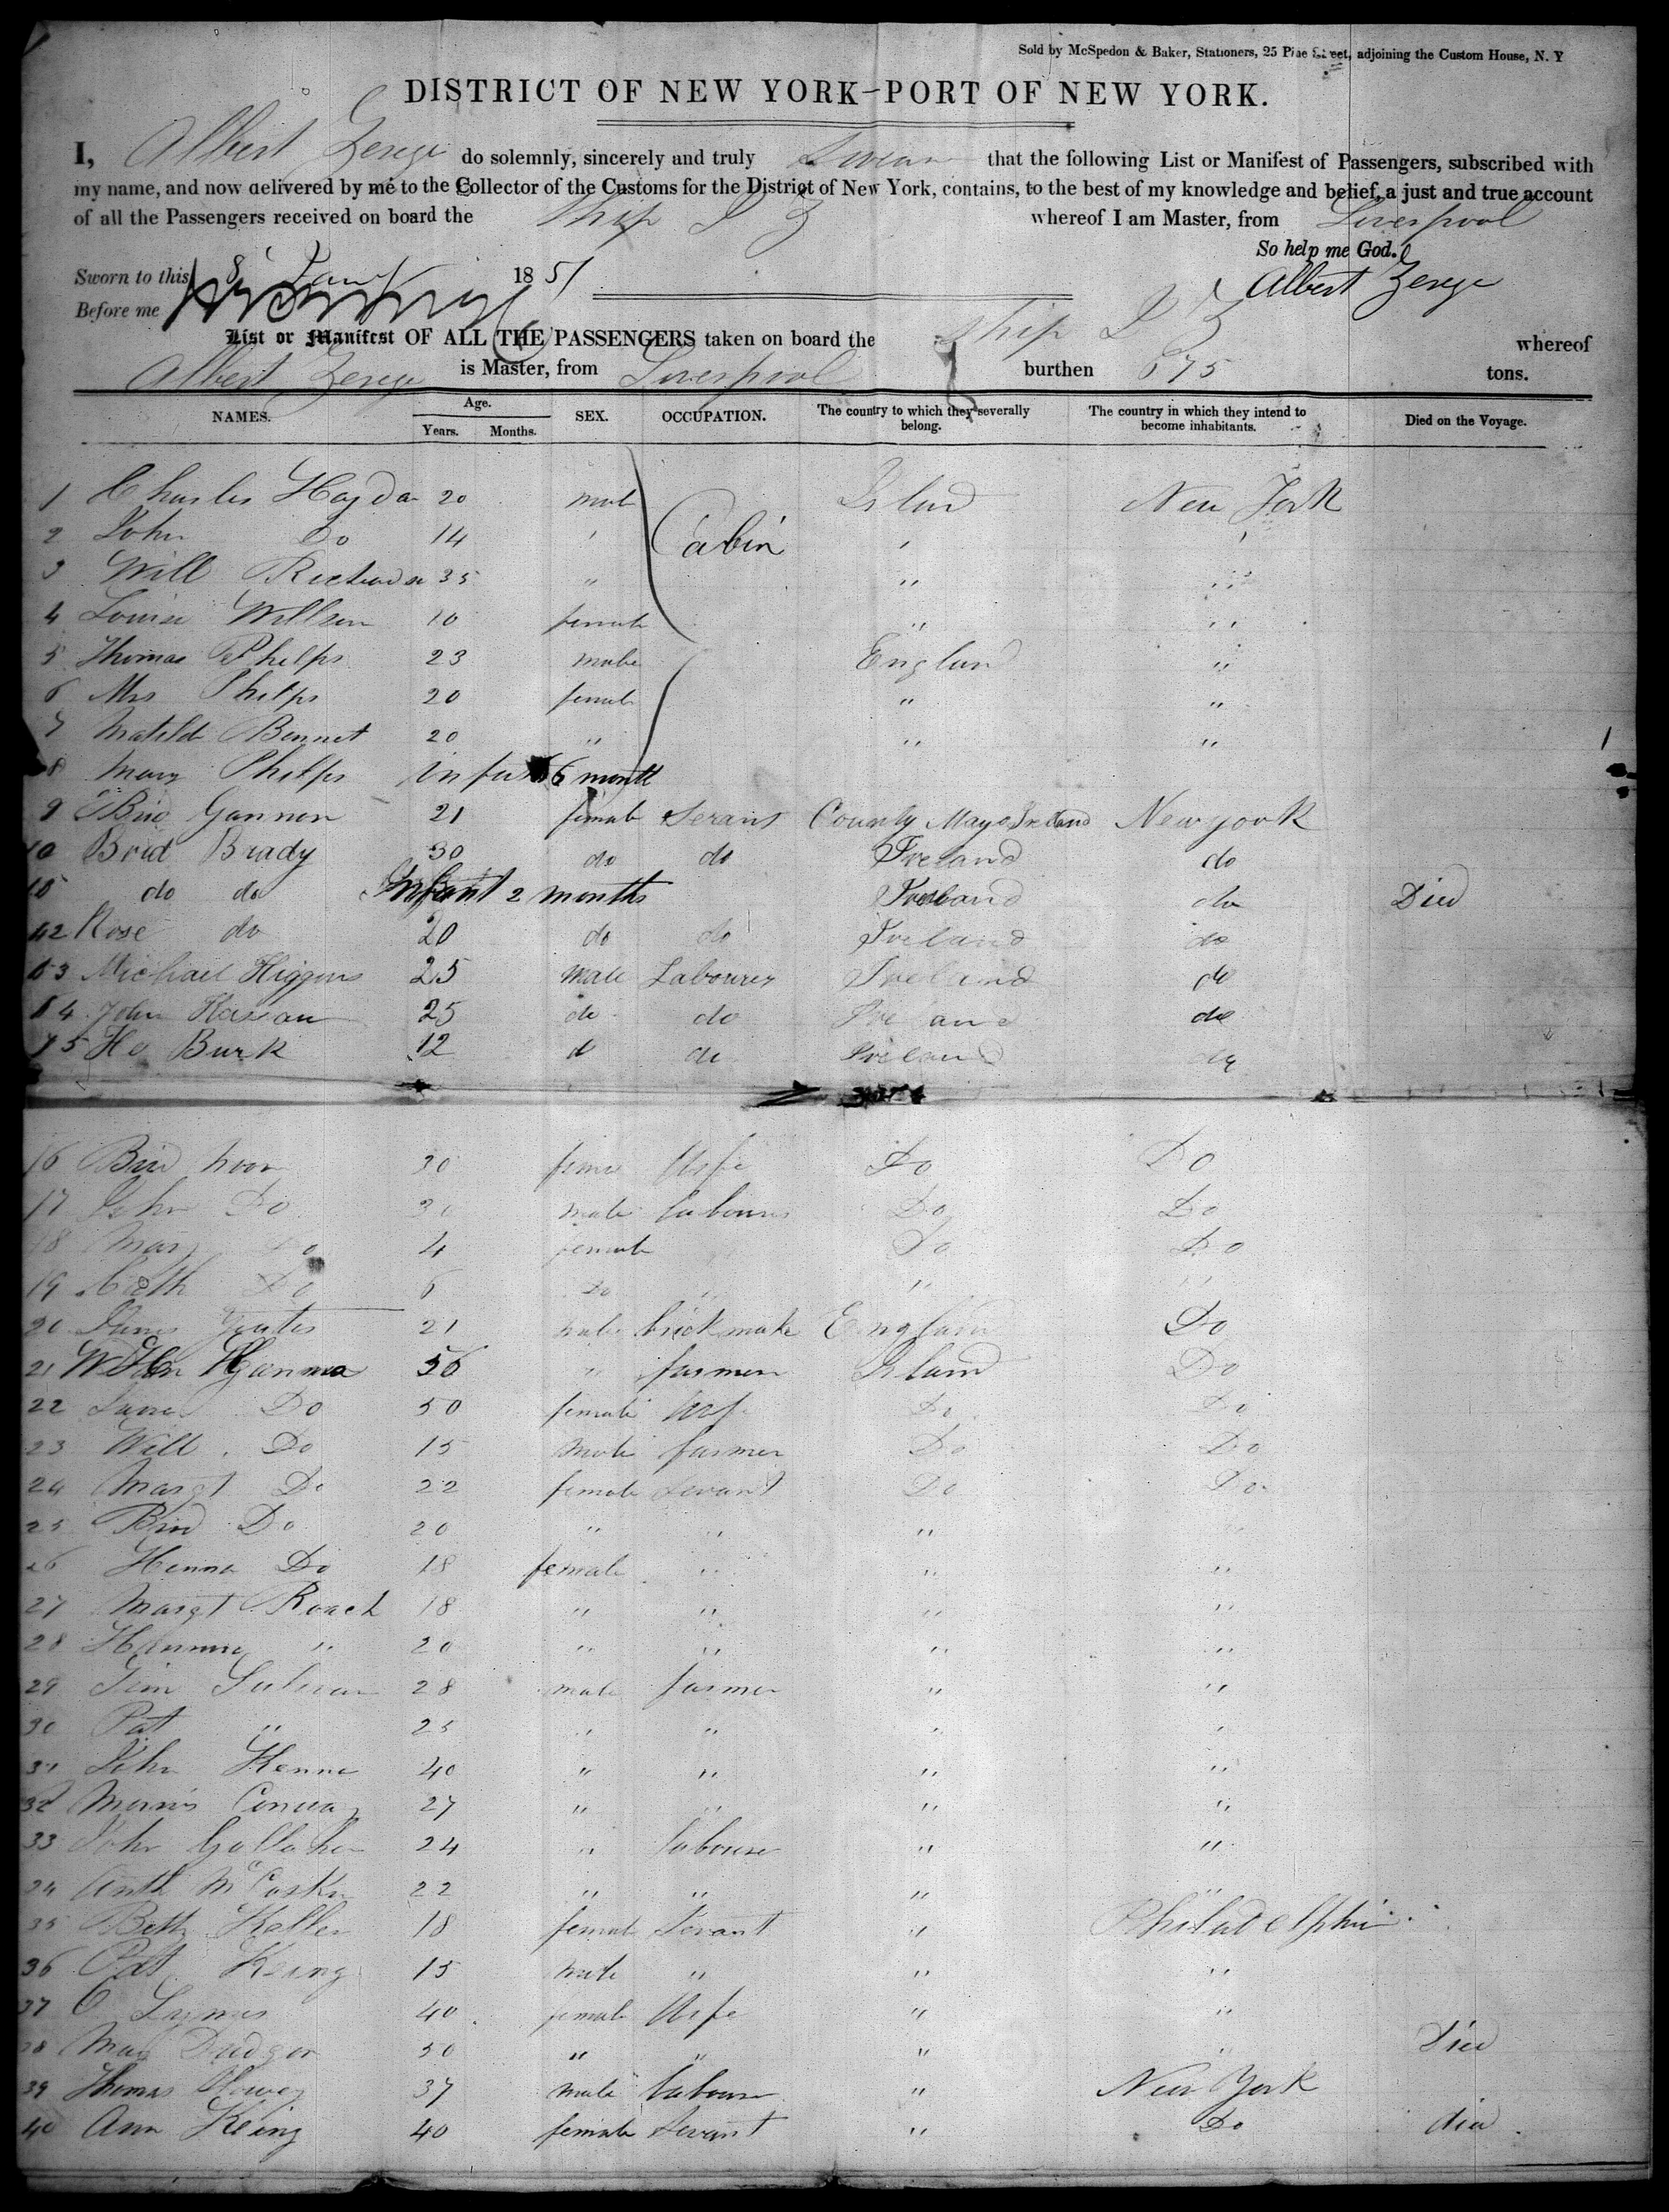 Sold by McSpedon & Baker, Stationers, 25 Pine Street, adjoining the Custom House, N. Y
DISTRICT OF NEW YORK-PORT OF NEW YORK.
I, Albert Zerega do solemnly, sincerely and truly swear that the following List or Manifest of Passengers, subscribed with
my name, and now delivered by me to the Collector of the Customs for the District of New York, contains, to the best of my knowledge and belief, a just and true account
of all the Passengers received on board the Ship I Z whereof I am Master, from Liverpool
So help me God.
Sworn to this 8 Jany 1851 Albert Zerega
Before me
List or Manifest OF ALL THE PASSENGERS taken on board the Ship I Z whereof
Albert Zerega is Master, from Liverpool burthen 675 tons.
NAMES. Age. Years. Months. SEX. OCCUPATION. The country to which they severally belong. The country in which they intend to become inhabitants. Died on the Voyage.
1 Charles 20 male Cabin Irland New York
2 John Do 14 ' ' '
3 Will 35 " " "
4 Louisa Willson 10 female " "
5 Thomas Phelps 23 male England "
6 Mrs Phelps 20 female " "
7 Matild Bennet 20 " " "
8 Mary Phelps infant 6 month
9 Brid Gannon 21 female Serant County Mayo Ireland New york
10 Brid Brady 30 do do Ireland do
do do Infant 2 months Ireland do Died
12 Rose do 20 do do Ireland do
13 Michael Higgins 25 male Labourer Ireland do
14 John 25 do do Ireland do
15 Burk 12 d do Ireland do
16 Brid 30 Wife Do Do
17 John Do 30 male labourer Do Do
18 Mary Do 4 female Do Do
19 Cath Do 6 Do " " "
20 James Yates 21 male brickmake England Do
21 56 " farmer Irland Do
22 Jane Do 50 female Wife Do Do
23 Will Do 15 male farmer Do Do
24 Margt Do 22 female Servant Do Do
25 Brid Do 20 " " " "
26 Henna Do 18 female " " "
27 Margt Roach 18 " " " "
28 " 20 " " " "
29 Tim Sulivan 28 male farmer " "
30 Pat " 25 " " " "
31 John Henna 40 " " " "
32 Morris 27 " " " "
33 John Gallaher 24 " labourer " "
34 22 " " " "
35 18 female Servant " Philadelphia
36 Pat Keing 15 male " " "
37 40 female Wife " "
38 50 " " " " Died
39 Thomas 37 male labourer " New York
40 Ann Keing 40 female Servant " Do died